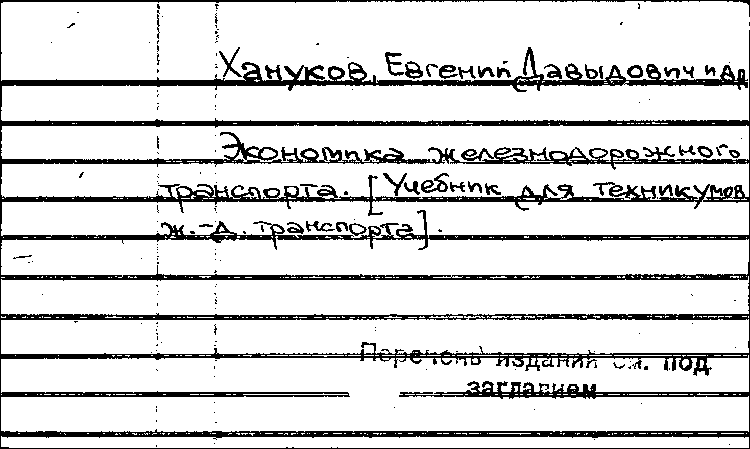 Хануков, Евгений Давыдович и др
Экономика железнодорожного
транспорта. [Учебник для техникумов
ж.-д. транспорта].
Перечень изданий см. под
заглавием